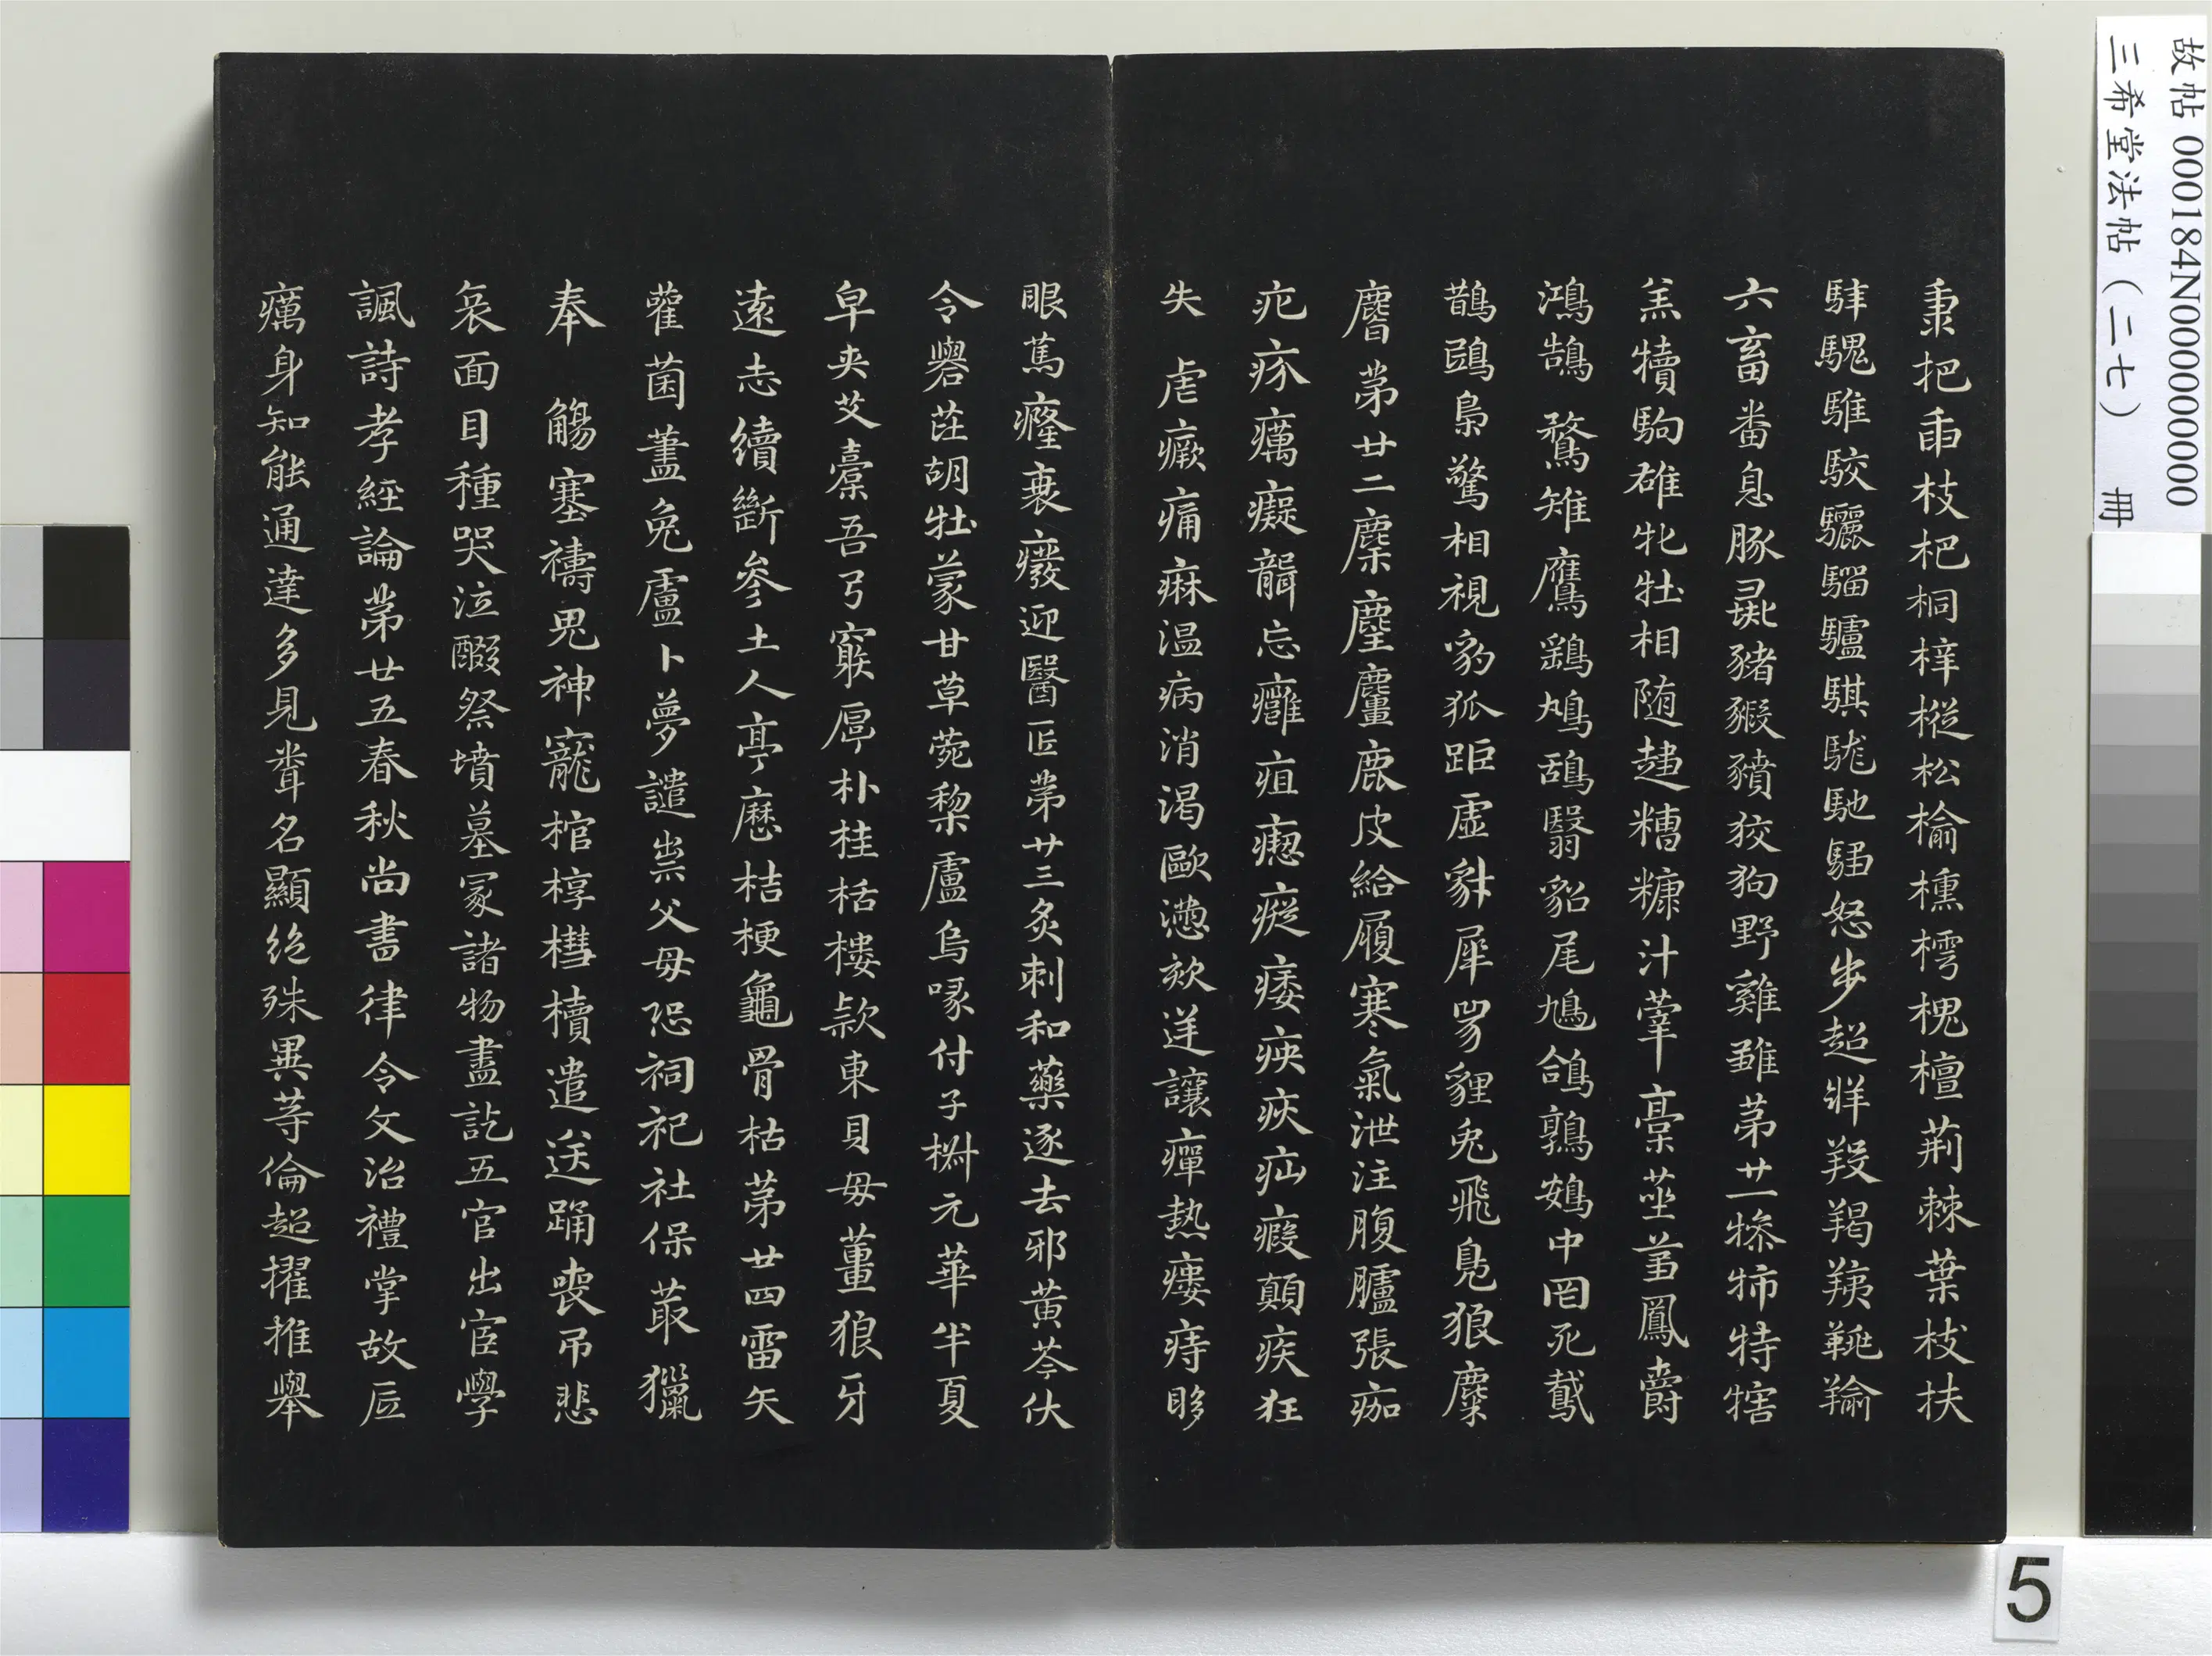 秉把臿枝杷桐梓樅松榆櫄樗槐檀荊棘葉枝扶
騂騩騅駮驪騮驢騏駹馳驅怒步超牂羖羯羠䍮羭
六畜蕃息豚彘豬豭豶狡狗野雞雛苐廿一㹊㹂特犗
羔犢駒雄牝牡相随趍糟糠汁滓稾莝芻鳳爵
鴻鵠鶩雉鷹鷂鳩鴰翳貂尾鳩鴿鶉鴳中罔死鳶
鵲鴟梟驚相視豹狐距虛豺犀兕貍兔飛鳧狼麋
麏苐廿二麇麈麠鹿皮給履寒氣泄注腹臚張痂
疕疥癘癡聾忘癰疽瘛瘲痿疾疢疝瘕顛疾狂
失 虐瘚痛痳温病消渴歐懣欬逆讓癉熱瘻痔眵
眼篤癃衰癈迎醫匠苐廿三炙刺和藥逐去邪黃芩伏
令礜茈胡牡蒙甘草菀棃盧烏喙付子椒元華半夏
皁夾艾橐吾弓窮厚朴桂栝樓款東貝毋薑狼牙
遠志續斷參土人亭歷桔梗龜骨枯苐廿四雷矢
雚菌藎兔盧卜夢譴祟父母恐祠祀社保蕞獵
奉 觴塞禱鬼神寵棺椁槥櫝遣送踊喪弔悲
哀面目種哭泣醊祭墳墓冢諸物盡訖五官出宦學
諷詩孝經論苐廿五春秋尚書律令文治禮掌故厎
癘身知能通達多見聞名顯絕殊異等倫超擢推舉
故帖 000184N000000000
三希堂法帖(二七) 冊
5